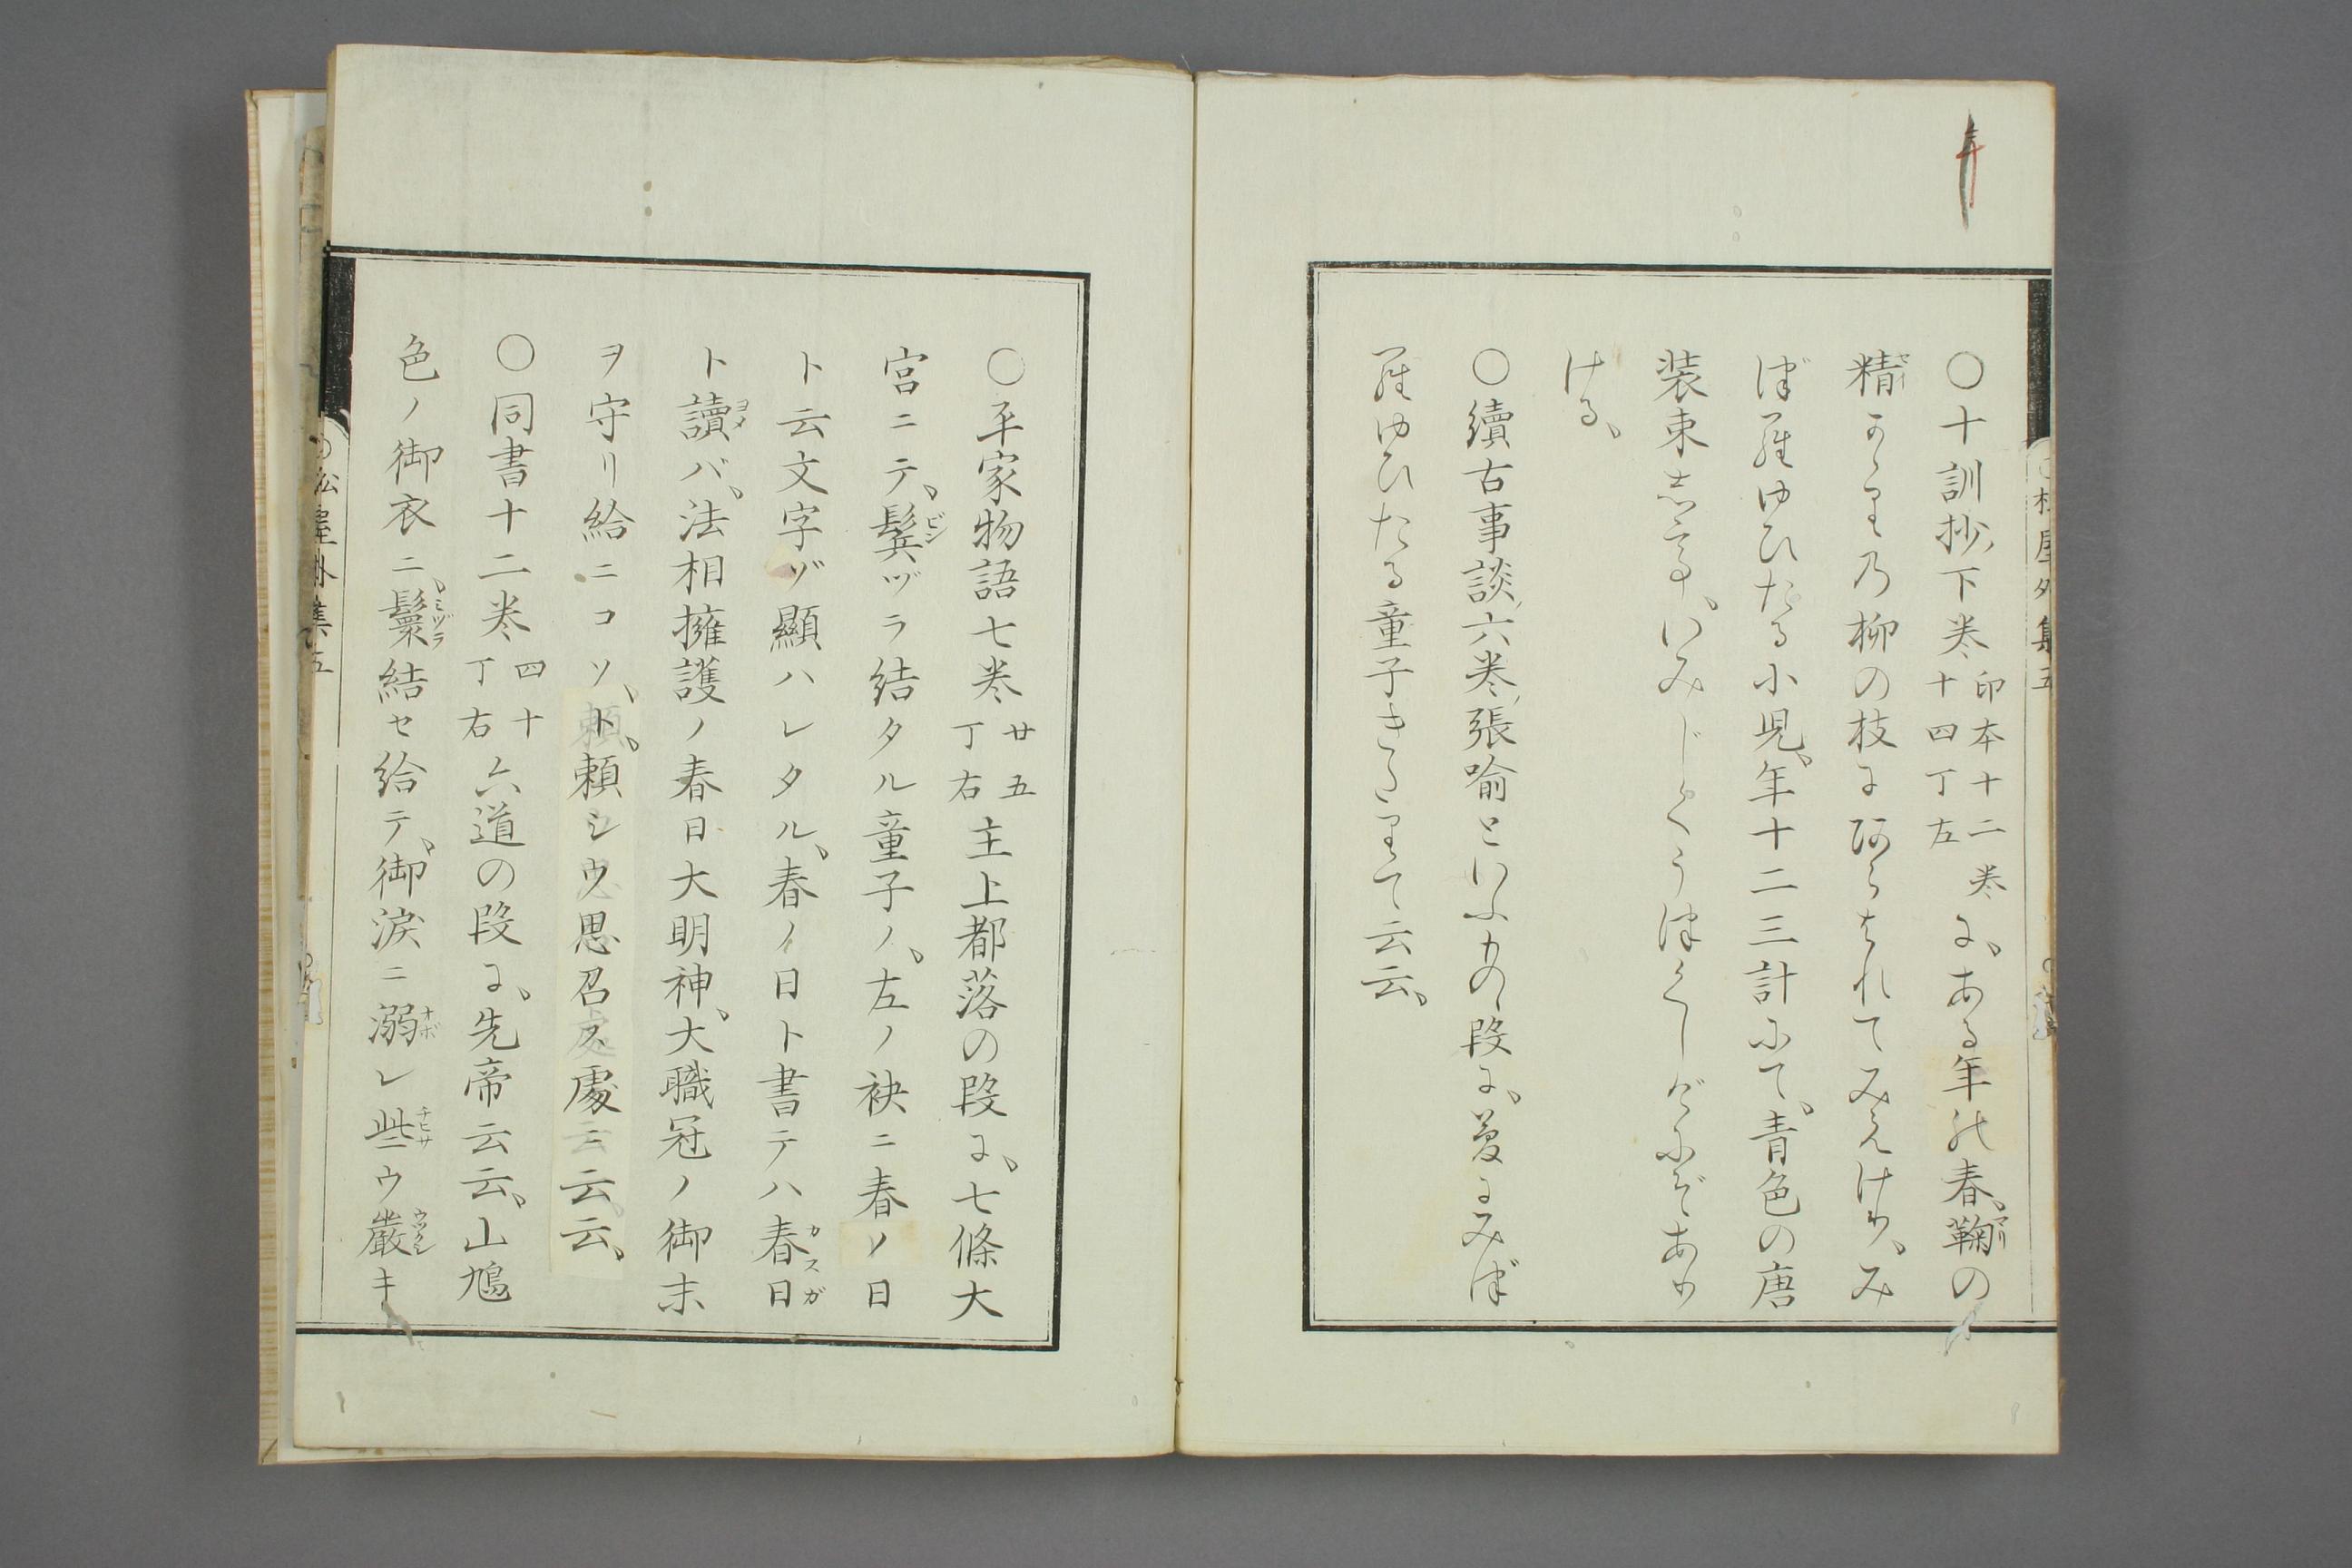 ○十訓抄、下巻印本十二巻十四丁左に、ある年の春、鞠マリの
精セイかゝりの柳の枝にあらはれてみえけり、み
づらゆひたる小児、年十二三計にて、青色の唐
装束して、いみじくうつくしげにぞあり
ける、
○續古事談、六巻、張喩といふものゝ段に、夢にみづ
らゆひたる童子きたりて云云、
松屋外集五
○平家物語七巻廿五丁右主上都落の段に、七條大
宮ニテ、鬢ビンヅラ結タル童子ノ、左ノ袂ニ春ノ日
ト云文字ゾ顯ハレタル、春ノ日ト書テハ春日カスガ
ト讀ヨメバ、法相擁護ノ春日大明神、大職冠ノ御末
ヲ守リ給ニコソ、ト、頼シウ思召ス處ニ云云、
○同書十二巻四十丁右六道の段に、先帝云云、山鳩
色ノ御衣ニ、鬟ミヅラ結セ給テ、御涙ニ溺オボレ些チヒサウ厳ウツクシキ
松屋外集五